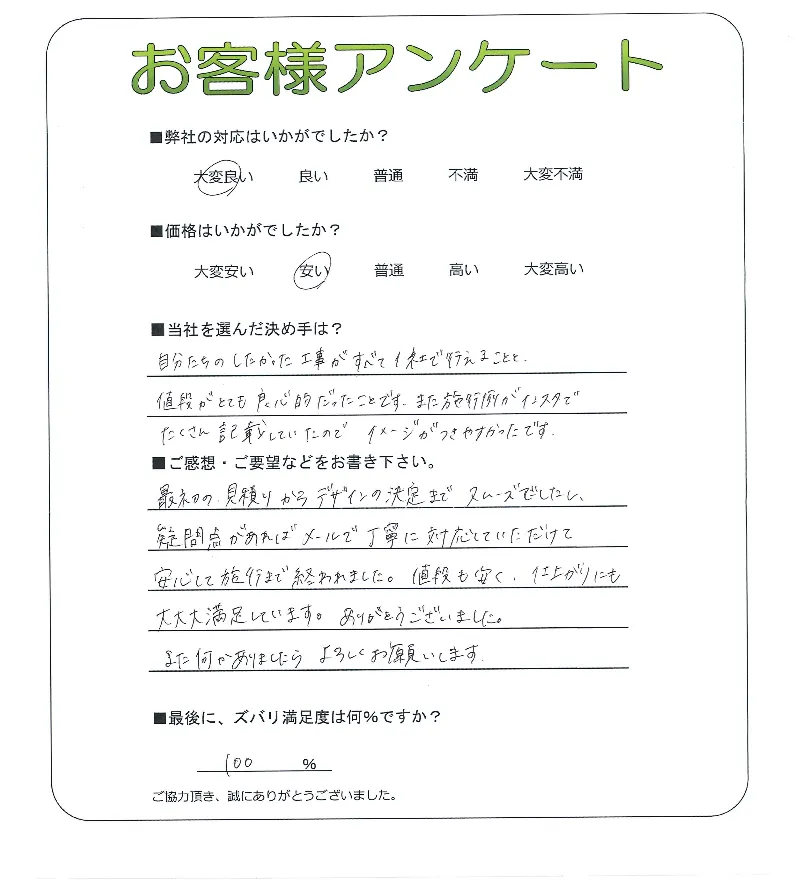 お客様アンケート
■弊社の対応はいかがでしたか？
大変良い 良い 普通 不満 大変不満
■価格はいかがでしたか？
大変安い 安い 普通 高い 大変高い
■当社を選んだ決め手は？
自分たちのしたかった工事がすべて1社で行えることと、
値段がとても良心的だったことです。また施行例がインスタで
たくさん記載していたので イメージがつきやすかったです。
■ご感想・ご要望などをお書き下さい。
最初の見積りからデザインの決定までスムーズでしたし、
疑問点があればメールで丁寧に対応していただけて
安心して施行まで終われました。値段も安く、仕上がりにも
大大大満足しています。ありがとうございました。
また何かありましたら よろしくお願いします。
■最後に、ズバリ満足度は何％ですか？
100 ％
ご協力頂き、誠にありがとうございました。